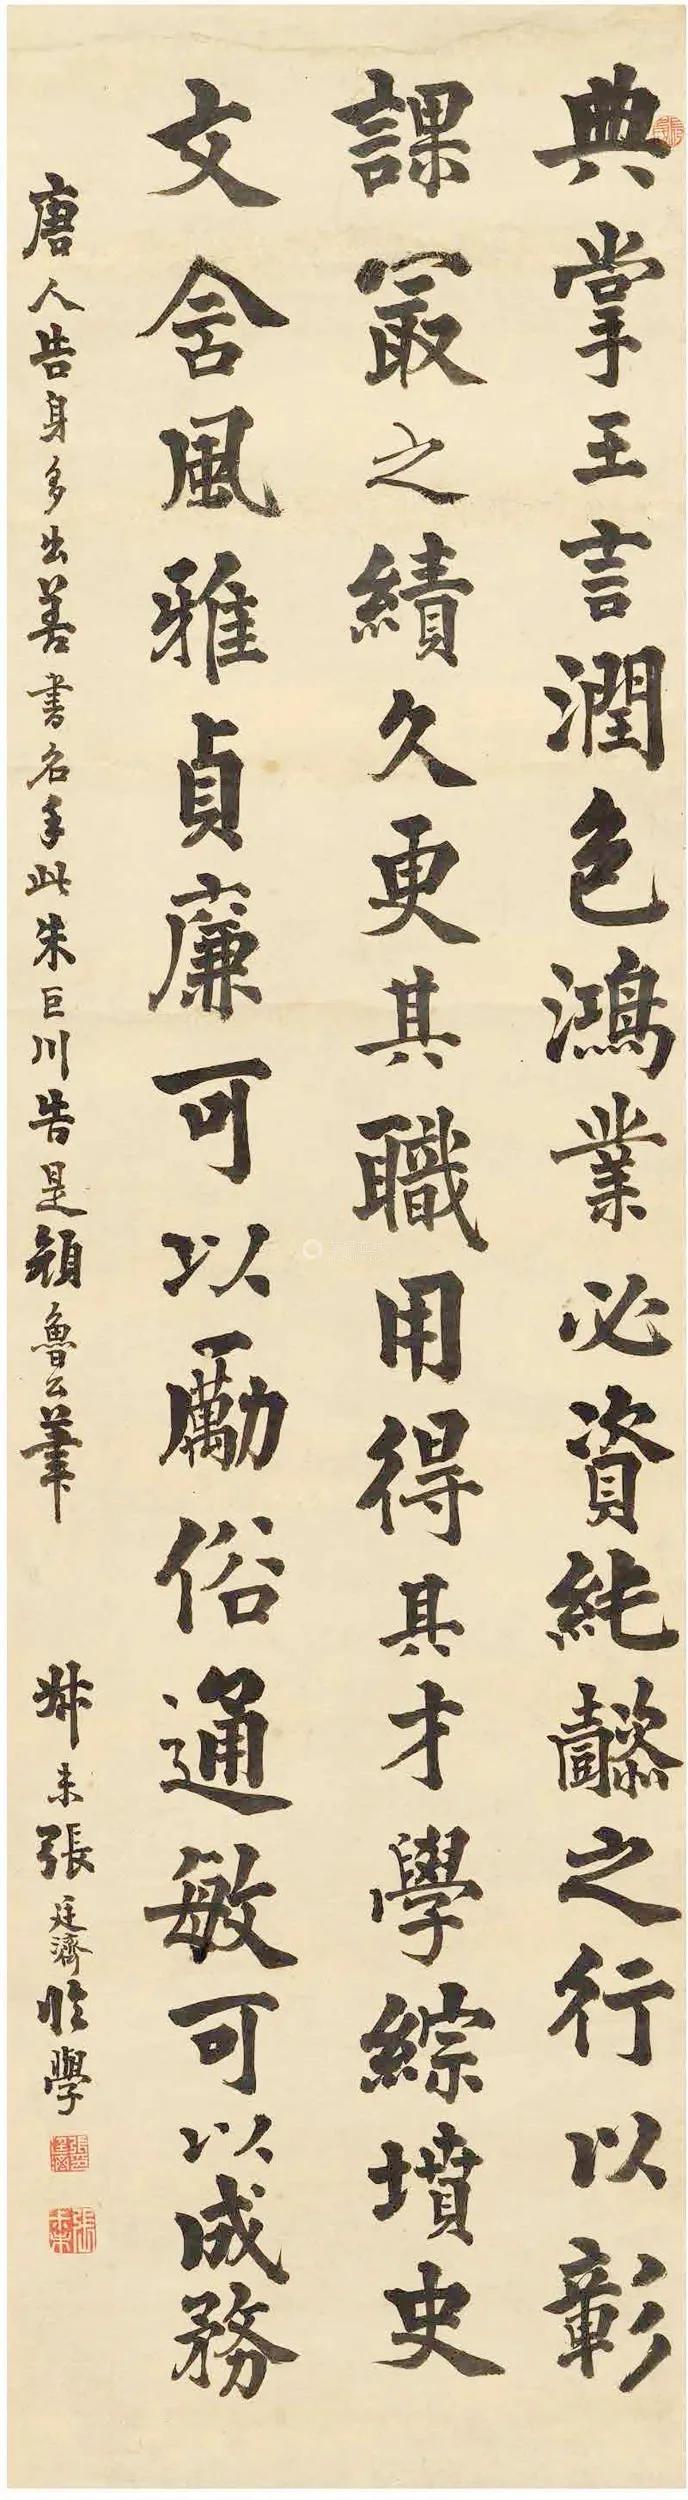 典掌王言潤色鴻業必資純懿之行以彰
課最之績久更其職用得其才學綜墳史
文含風雅貞廉可以勵俗通敏可以成務
唐人告身多出善書名手此朱巨川告是顏魯公筆
叔未張廷濟臨學